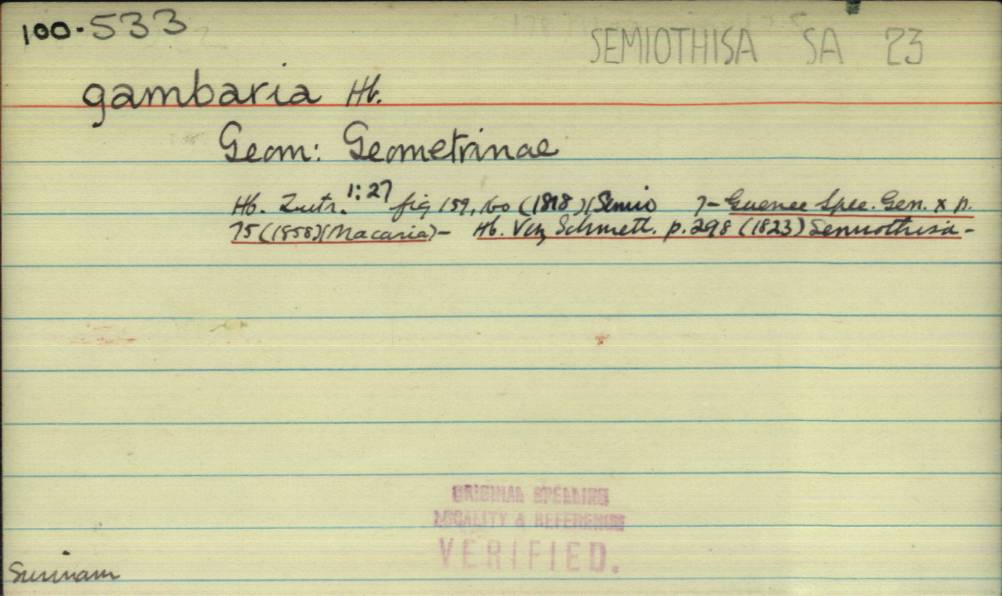 100.533
SEMIOTHISA SA 23
gambaria Hb.
Geom: Geometrinae
Hb. Zutr. 1:27 fig 159, 160 (1818)(Semio 7- Guenee Spec. Gen. x p.
75 (1858)(Macaria)- Hb. Verz Schmett. p. 298 (1823) Semiothisa-
ORIGINAL SPELLING
LOCALITY & REFERENCE
VERIFIED.
Surinam